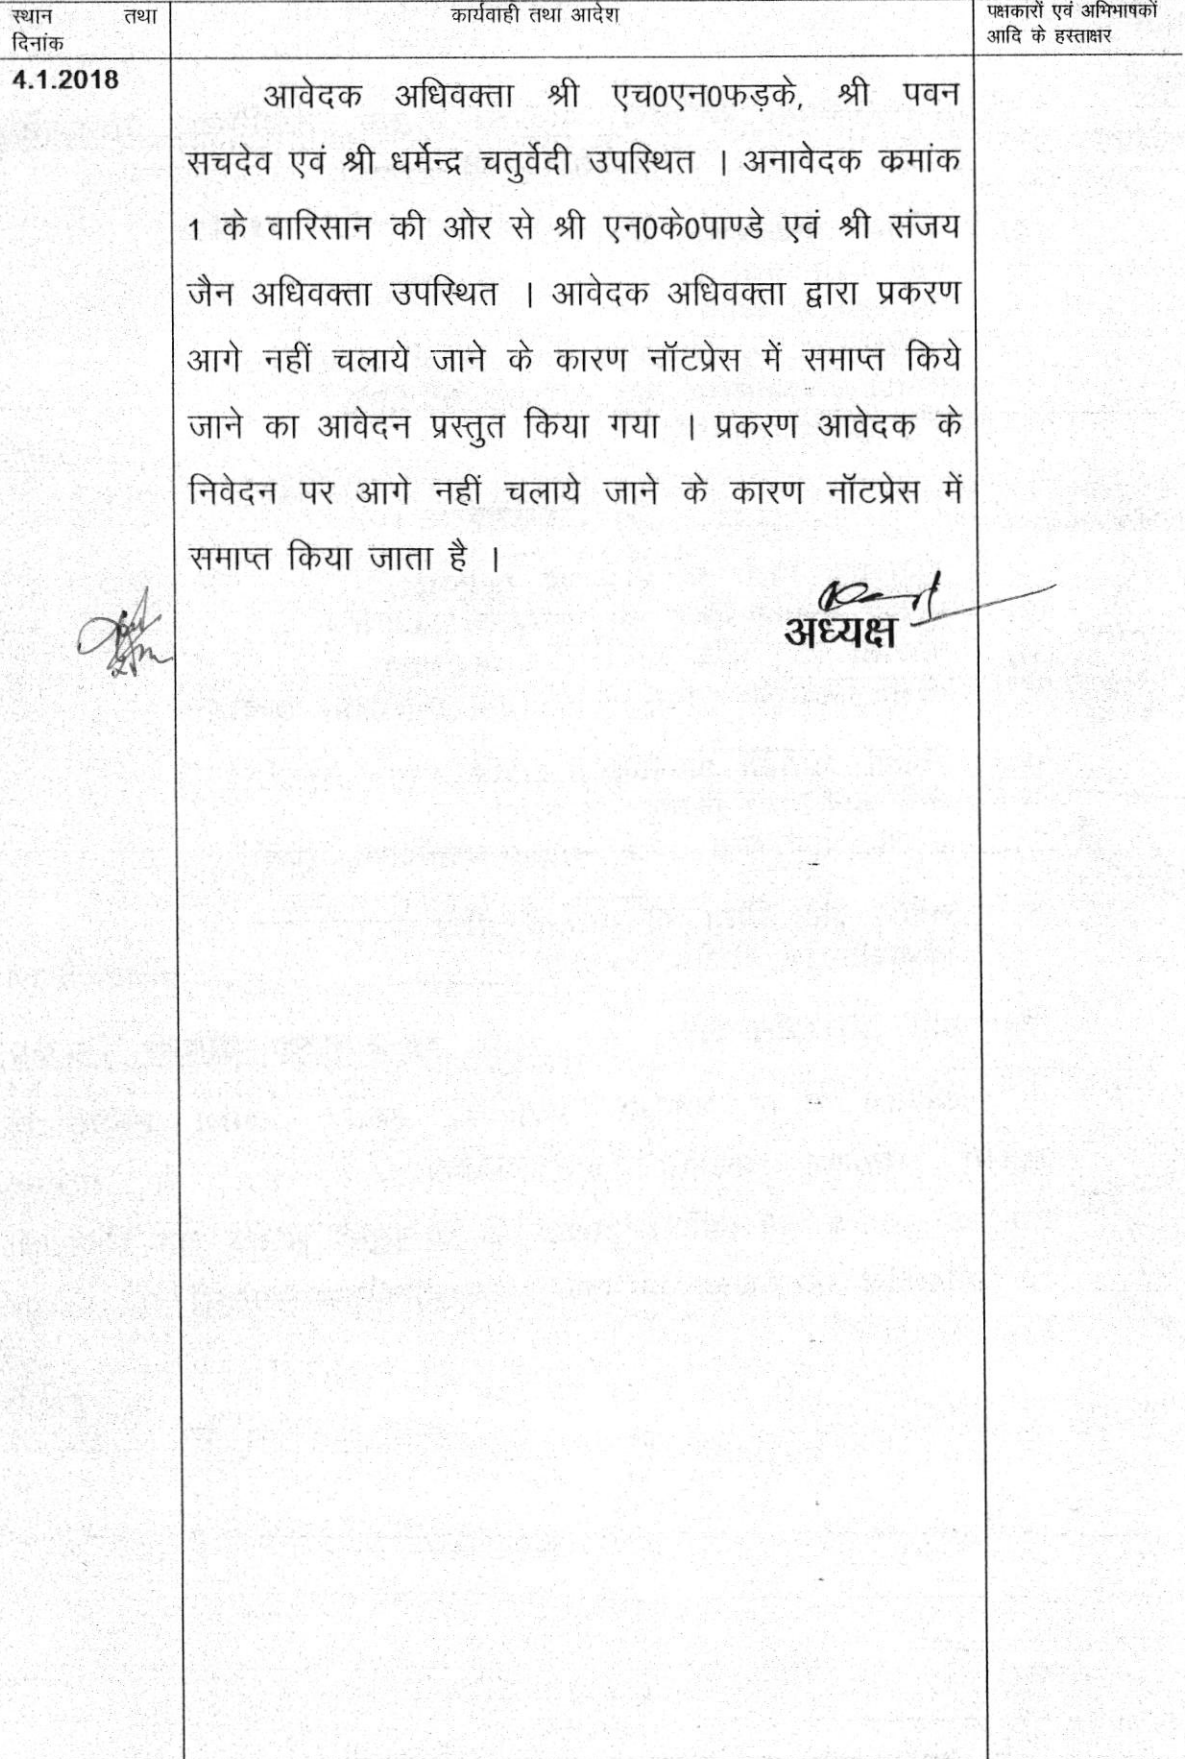 स्थान तथा
दिनांक
कार्यवाही तथा आदेश
पक्षकारों एवं अभिभाषकों
आदि के हस्ताक्षर
4.1.2018
आवेदक अधिवक्ता श्री एच0एन0फड़के, श्री पवन
सचदेव एवं श्री धर्मेन्द्र चतुर्वेदी उपस्थित । अनावेदक क्रमांक
1 के वारिसान की ओर से श्री एन0के0पाण्डे एवं श्री संजय
जैन अधिवक्ता उपस्थित । आवेदक अधिवक्ता द्वारा प्रकरण
आगे नहीं चलाये जाने के कारण नॉटप्रेस में समाप्त किये
जाने का आवेदन प्रस्तुत किया गया । प्रकरण आवेदक के
निवेदन पर आगे नहीं चलाये जाने के कारण नॉटप्रेस में
समाप्त किया जाता है ।
अध्यक्ष